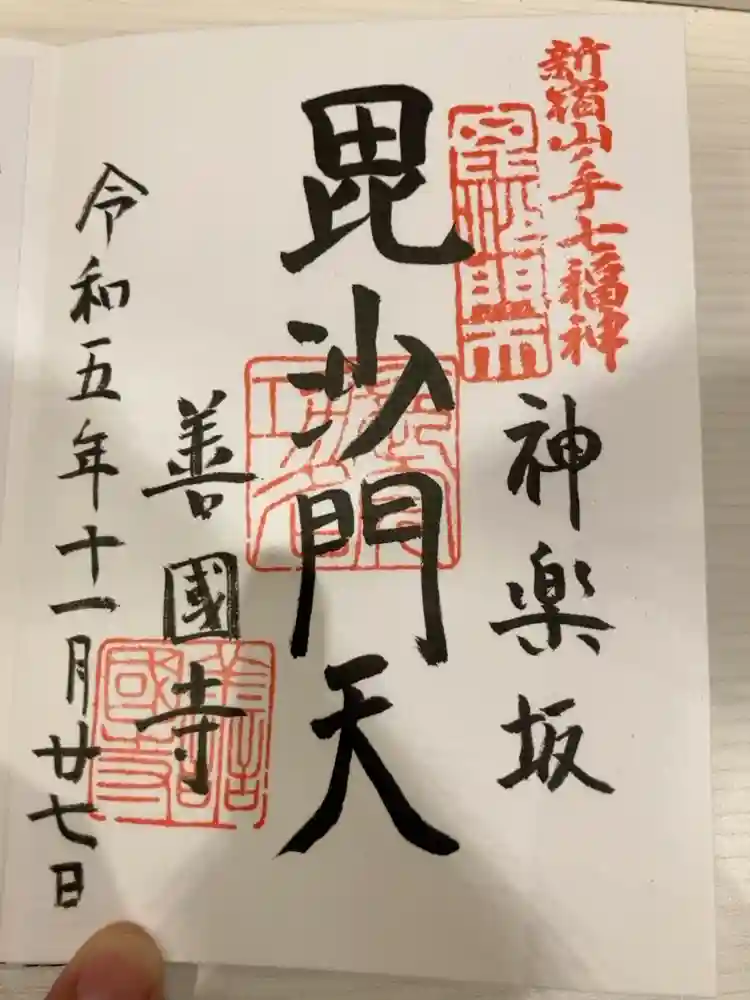 新宿山ノ手七福神
神楽坂
毘沙門天
善國寺
令和五年十一月廿七日